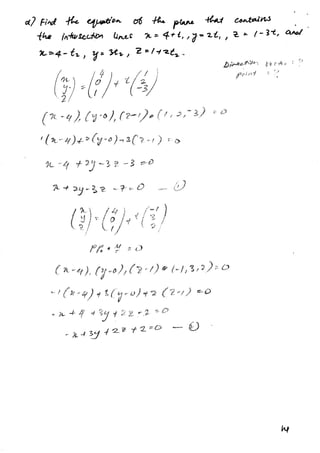 a) Find the equation of the plane that contains
the intersection lines x = 4 + t₁, y = 2t₁, z = 1 - 3t, and
x = 4 - t₂, y = 3t₂, z = 1 + 2t₂.
(x y z) = (4 0 1) + t(1 2 -3)
(x - 4), (y - 0), (z - 1) • (1, 2, -3) = 0
1(x - 4) + 2(y - 0) - 3(z - 1) = 0
x - 4 + 2y - 3z - 3 = 0
x + 2y - 3z - 7 = 0 — (i)
(x y z) = (4 0 1) + t(-1 3 2)
PP₀ • n = 0
(x - 4), (y - 0), (z - 1) • (-1, 3, 2) = 0
-1(x - 4) + 3(y - 0) + 2(z - 1) = 0
-x + 4 + 3y + 2z - 2 = 0
-x + 3y + 2z + 2 = 0 — (ii)